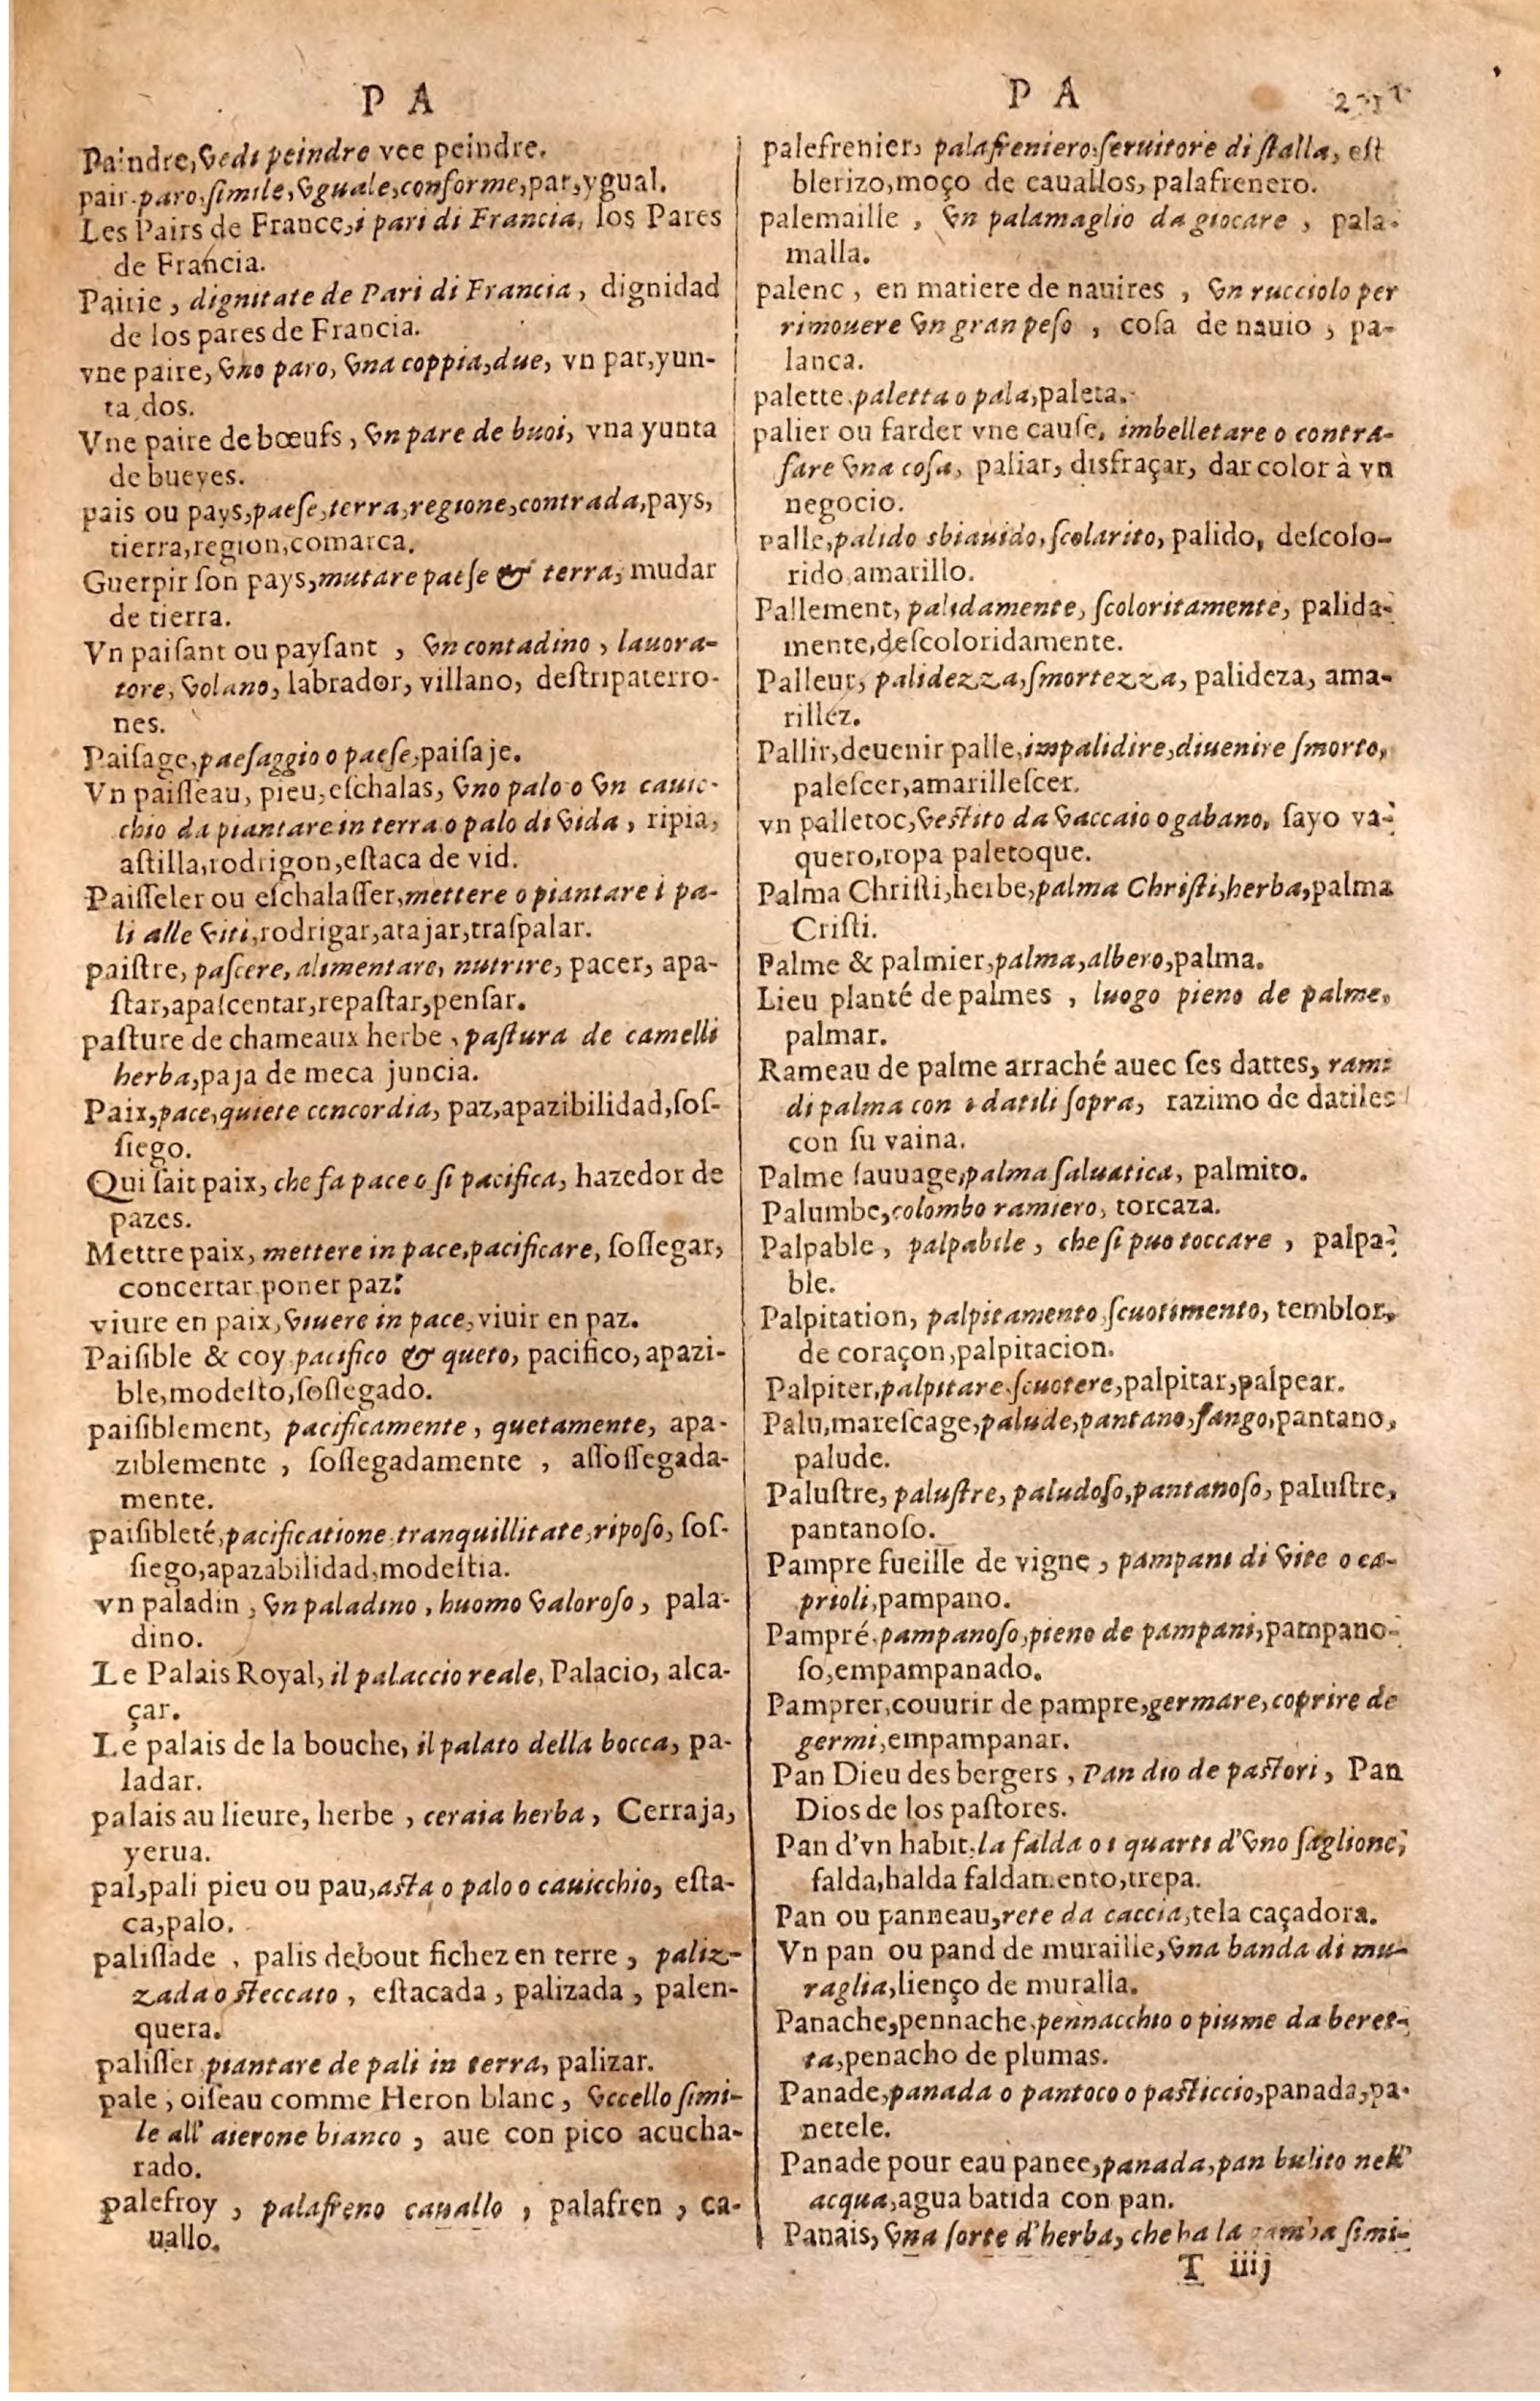 P A
Paindre, vedi peindre vee peindre.
pair. paro, simile, vguale, conforme, par, ygual.
Les Pairs de France, i pari di Francia, los Pares
de Francia.
Pairie, dignitate de Pari di Francia, dignidad
de los pares de Francia.
vne paire, vno paro, vna coppia, due, vn par, yun-
ta dos.
Vne paire de bœufs, vn pare de buoi, vna yunta
de bueyes.
pais ou pays, paese, terra, regione, contrada, pays,
tierra, region, comarca.
Guerpir son pays, mutare paese & terra, mudar
de tierra.
Vn paisant ou paysant, vn contadino, lauora-
tore, volano, labrador, villano, destripaterro-
nes.
Paisage, paesaggio o paese, paisaje.
Vn paisseau, pieu, eschalas, vno palo o vn cauic-
chio da piantare in terra o palo di vida, ripia,
astilla, rodrigon, estaca de vid.
Paisseler ou eschalasser, mettere o piantare i pa-
li alle viti, rodrigar, atajar, traspalar.
paistre, pascere, alimentare, nutrire, pacer, apa-
star, apascentar, repastar, pensar.
pasture de chameaux herbe, pastura de camelli
herba, paja de meca juncia.
Paix, pace, quiete concordia, paz, apazibilidad, sos-
siego.
Qui fait paix, che fa pace o si pacifica, hazedor de
pazes.
Mettre paix, mettere in pace, pacificare, sossegar,
concertar poner paz.
viure en paix, viuere in pace, viuir en paz.
Paisible & coy pacifico & queto, pacifico, apazi-
ble, modesto, sossegado.
paisiblement, pacificamente, quetamente, apa-
ziblemente, sossegadamente, assossegada-
mente.
paisibleté, pacificatione, tranquillitate, riposo, sos-
siego, apazabilidad, modestia.
vn paladin, vn paladino, huomo valoroso, pala-
dino.
Le Palais Royal, il palaccio reale, Palacio, alca-
çar.
Le palais de la bouche, il palato della bocca, pa-
ladar.
palais au lieure, herbe, ceraia herba, Cerraja,
yerua.
pal, pali pieu ou pau, asta o palo o cauicchio, esta-
ca, palo.
palissade, palis debout fichez en terre, paliz-
zada o steccato, estacada, palizada, palen-
quera.
palisser piantare de pali in terra, palizar.
pale, oiseau comme Heron blanc, vccello simi-
le all' aierone bianco, aue con pico acucha-
rado.
palefroy, palafreno cauallo, palafren, ca-
uallo.
P A
palefrenier, palafreniero, seruitore di stalla, est
blerizo, moço de cauallos, palafrenero.
palemaille, vn palamaglio da giocare, pala-
malla.
palenc, en matiere de nauires, vn rucciolo per
rimouere vn gran peso, cosa de nauio, pa-
lanca.
palette, paletta o pala, paleta.
palier ou farder vne cause, imbelletare o contra-
fare vna cosa, paliar, disfraçar, dar color à vn
negocio.
palle, palido sbiauido, scolarito, palido, descolo-
rido, amarillo.
Pallement, palidamente, scoloritamente, palida-
mente, descoloridamente.
Palleur, palidezza, smortezza, palideza, ama-
rillez.
Pallir, deuenir palle, impalidire, diuenire smorto,
palescer, amarillescer.
vn palletoc, vestito da vaccaio o gabano, sayo va-
quero, ropa paletoque.
Palma Christi, herbe, palma Christi, herba, palma
Cristi.
Palme & palmier, palma, albero, palma.
Lieu planté de palmes, luogo pieno de palme,
palmar.
Rameau de palme arraché auec ses dattes, rami
di palma con i datili sopra, razimo de datiles
con su vaina.
Palme sauuage, palma saluatica, palmito.
Palumbe, colombo ramiero, torcaza.
Palpable, palpabile, che si puo toccare, palpa-
ble.
Palpitation, palpitamento scuotimento, temblor,
de coraçon, palpitacion.
Palpiter, palpitare, scuotere, palpitar, palpear.
Palu, marescage, palude, pantano, fango, pantano,
palude.
Palustre, palustre, paludoso, pantanoso, palustre,
pantanoso.
Pampre fueille de vigne, pampani di vite o ca-
prioli, pampano.
Pampré, pampanoso, pieno de pampani, pampano-
so, empampanado.
Pamprer, couurir de pampre, germare, coprire de
germi, empampanar.
Pan Dieu des bergers, Pan dio de pastori, Pan
Dios de los pastores.
Pan d'vn habit, la falda o i quarti d'vno saglione,
falda, halda faldamento, trepa.
Pan ou panneau, rete da caccia, tela caçadora.
Vn pan ou pand de muraille, vna banda di mu-
raglia, lienço de muralla.
Panache, pennache, pennacchio o piume da beret-
ta, penacho de plumas.
Panade, panada o pantoco o pasticcio, panada, pa-
netele.
Panade pour eau panee, panada, pan bulito nell'
acqua, agua batida con pan.
Panais, vna sorte d'herba, che ha la gamba simi-
T iiij